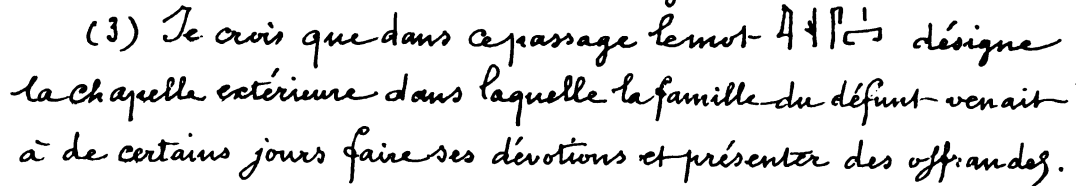 (3) Je crois que dans ce passage le mot désigne
la chapelle extérieure dans laquelle la famille du défunt venait
à de certains jours faire ses dévotions et présenter des offrandes.